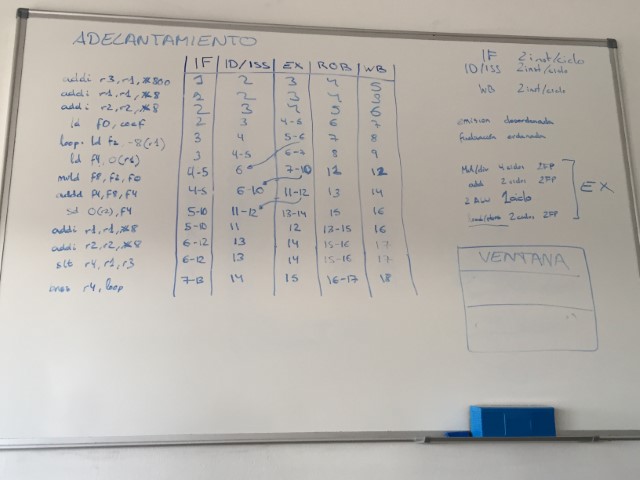 ADELANTAMIENTO
IF ID/ISS EX ROB WB
addi r3, r1, 2 3 4 5
addi r1, r1, #8 2 2 3
addi r2, r2, #8 2 3 4 5 6
ld f0, coef 2 3 4-5 6 7
loop: ld f2, -8(r1) 3 4 5-6 7 8
ld f4, 0(r1) 3 4-5 6-7 8 9
multd f8, f2, f0 4-5 6 7-10 12 12
addd f4, f8, f4 4-5 6-10 11-12 13 14
sd 0(r2), f4 5-10 11-12 13-14 15 16
addi r1, r1, #8 5-10 11 12 13-15 16
addi r2, r2, #8 6-12 13 14 15-16 17
slt r4, r1, r3 6-12 13 14 15-16 17
bnez r4, loop 7-13 14 15 16-17 18
IF 2 inst/ciclo
ID/ISS 2 inst/ciclo
WB 2 inst/ciclo
emision desordenada
finalización ordenada
Mult/div 4 ciclos 2FP
add 2 ciclos 2FP
2 ALU 1 ciclo
load/store 2 ciclos 2FP
EX
VENTANA